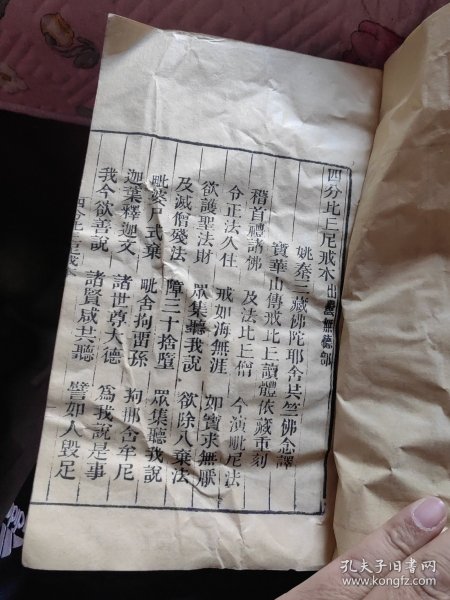 四分比丘尼戒本 出曇無德部
姚秦三藏佛陀耶舍共竺佛念譯
寶華山傳戒比丘讀體依藏重刻
稽首禮諸佛 及法比丘僧 今演毗尼法
令正法久住 戒如海無涯 如寶求無厭
欲護聖法財 眾集聽我說 欲除八棄法
及滅僧殘法 障三十捨墮 眾集聽我說
毗婆尸式棄 毗舍拘留孫 拘那含牟尼
迦葉釋迦文 諸世尊大德 為我說是事
我今欲善說 諸賢咸共聽 譬如人毀足
孔夫子旧书网
www.kongfz.com